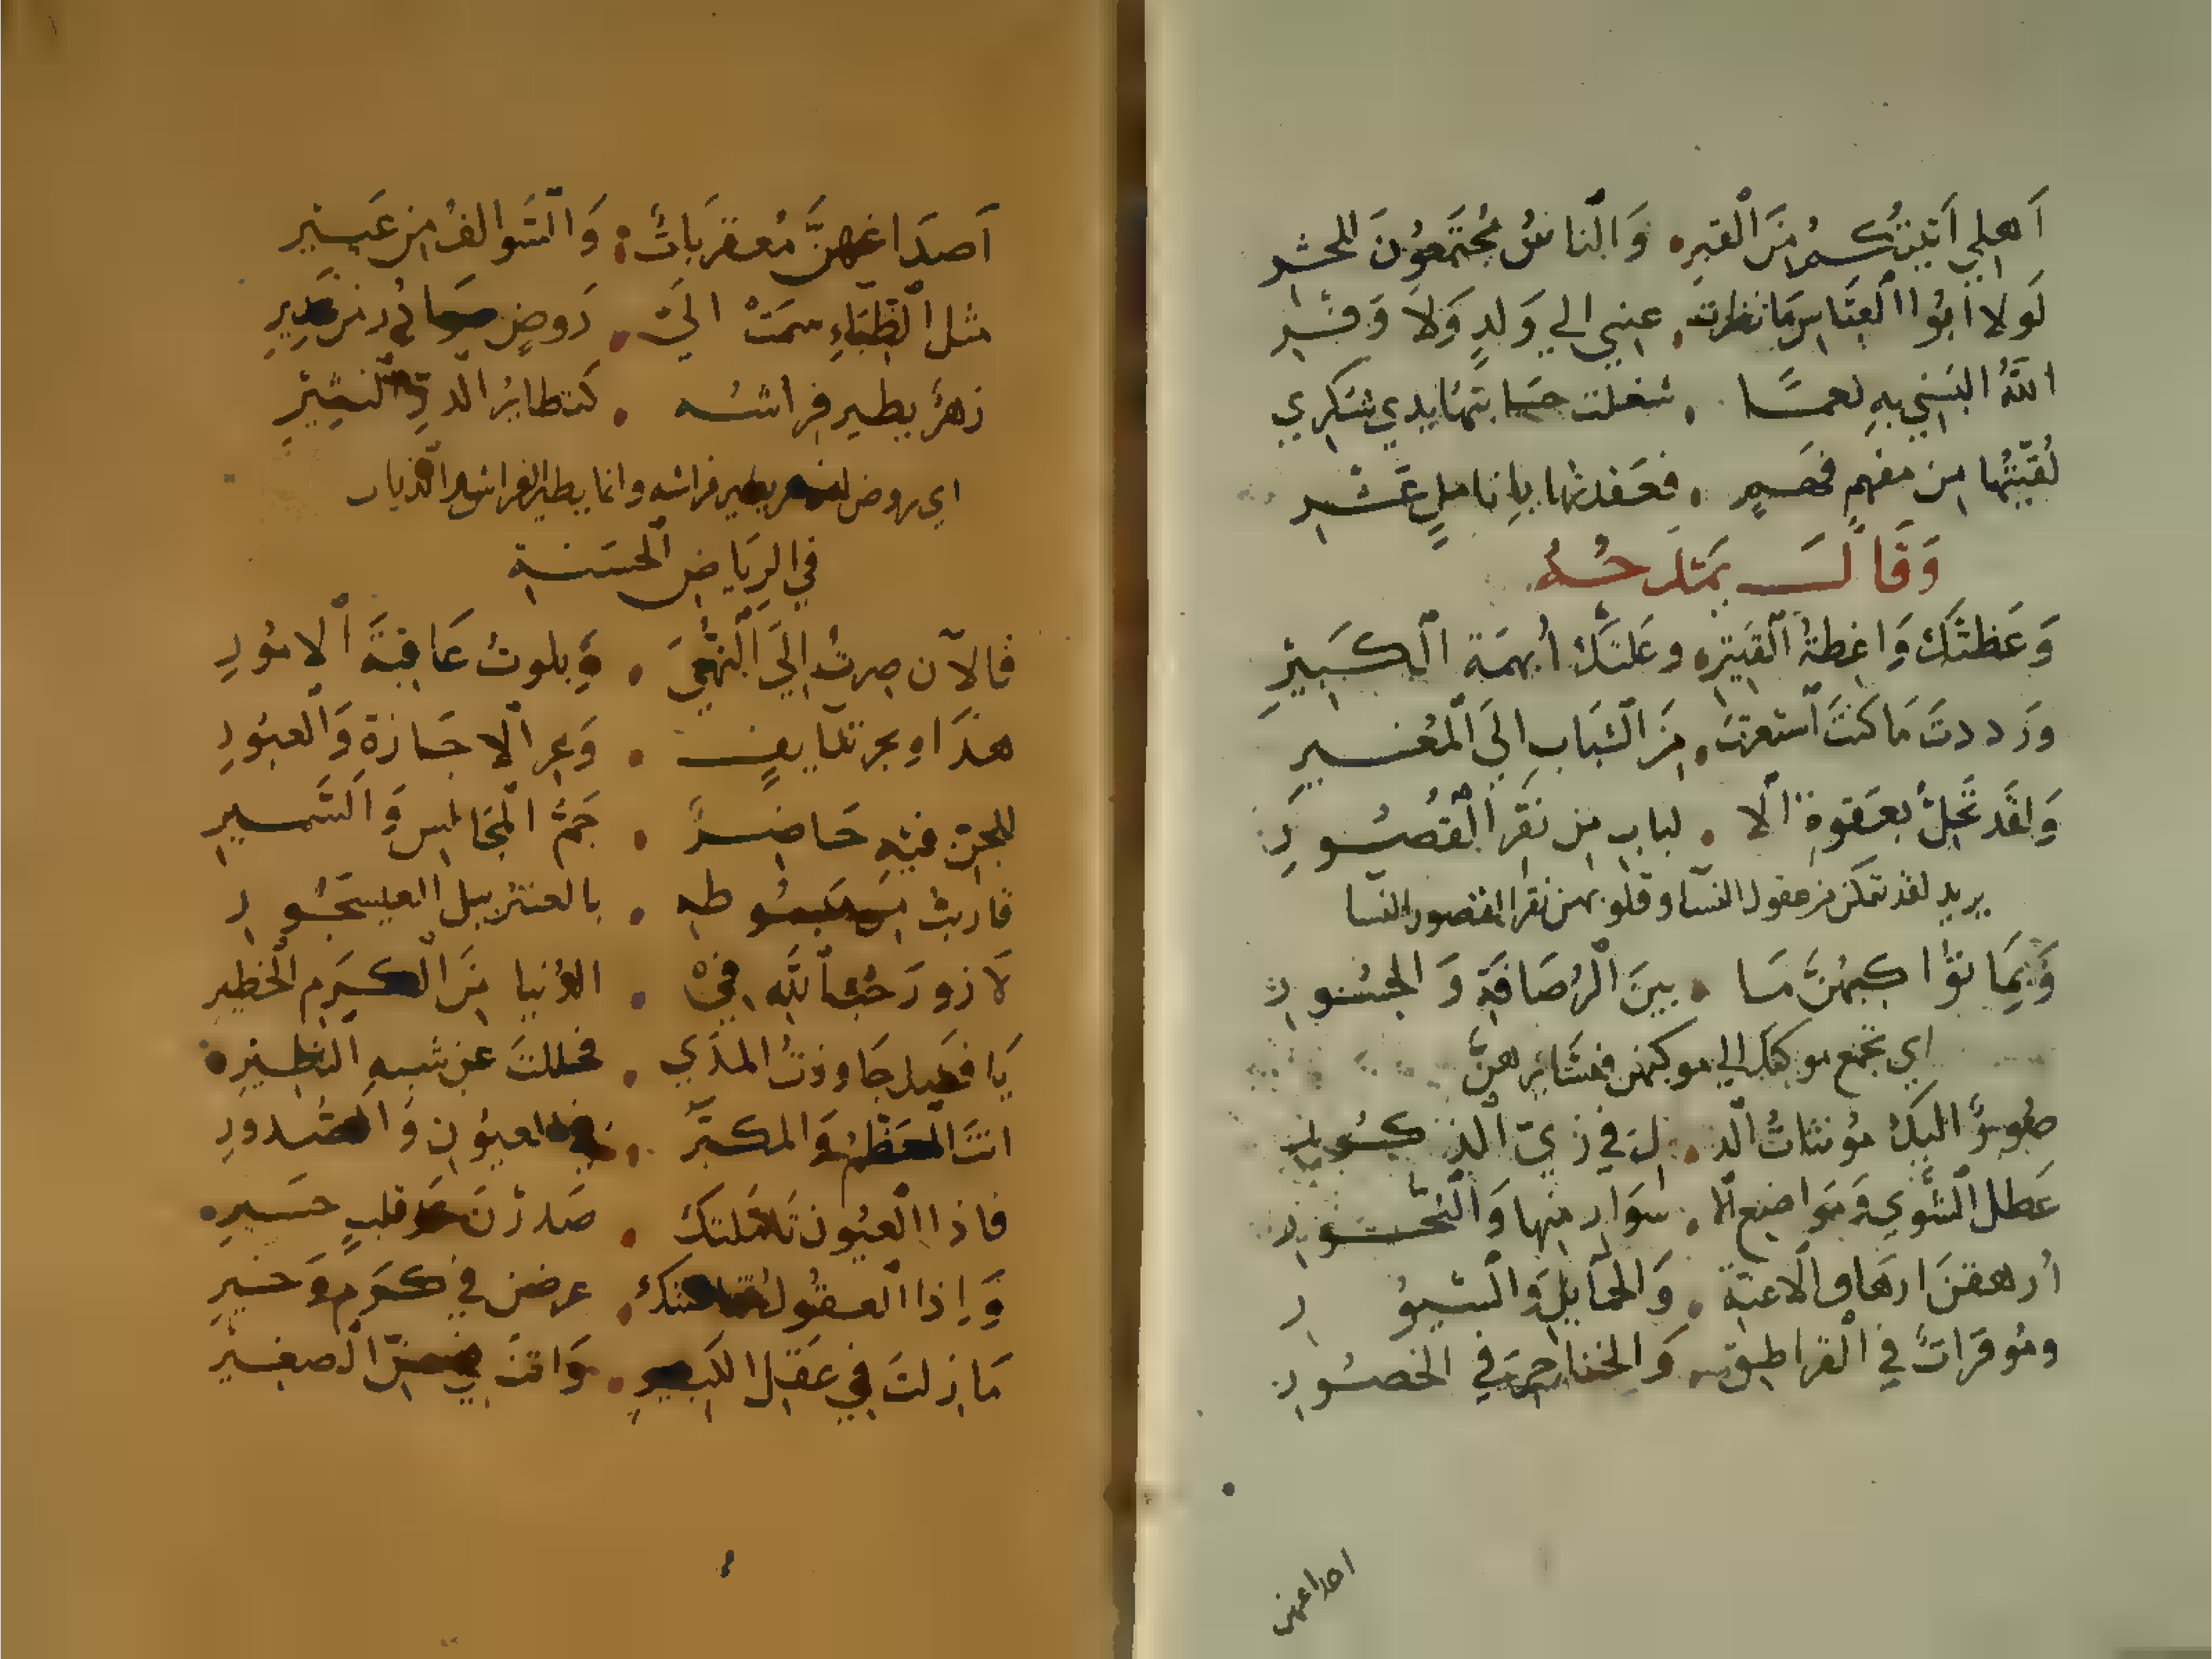 اَهلي اَتيتُكمُ مِنَ الْقبرِ • وَالنَاسُ مُجتَمعُونَ للحشرِ
لَولا اَبُو الْعبَّاسِ مَا نظرت • عيني الي وَلدٍ وَلا وَفرِ
اللَّهُ البَسَني بهِ نعمًا • شغلت حسَابتهَا يدي شكري
لُقّيتُها مِن مفهمٍ فَهِمٍ • فعَقدتها بِانامِلٍ عَشرِ
وَقَالَ يَمتدَحُهُ
وَعَظتكَ وَاعِظةُ الْقتيرِ • وعَلتكَ اُبهَة الْكَبيْرِ
ورَددتَ مَا كنتَ اَستعرتَ • مِنَ الشَبَابِ اِلَى الْمعُيرِ
وَلقَد تَحُلُّ بعَقوةِ الْا • لبابِ مِن بَقرِ الْقُصُورِ
يريد لقد تمكن من عقول النسا وقلوبهن بقر القصور النسا
وَبمَا تؤاكبهُنَّ مَا • بينَ الرُصَافَةِ وَالجسُورِ
اي تجمع موكبك الي موكبهن فتسَائرهنّ
صُورٌ اليكَ مُونثاتُ الدَ • لِّ في زيِّ الذكُورِ
عَطل الشَّوي وَمَواضع الْا • سوَار منها وَالنُحُورِ
اُرهقنَ ارهَاف الْاعنة • وَالحمَايلِ وَالسُيوُرِ
ومُوقرَاتٌ في الْقراطقِ • وَالخناجرَ في الخصُورِ
اصداغهن
اَصدَاغهنَّ مُعقرَبَاتٌ • وَالشَوالفُ مِن عَبيرِ
مثل الْظبَاءِ سمَتْ الَيَ • رَوضٍ صَوادرَ من غديرِ
زهرٌ يطير فراشُه • كتطايُر الدرِّ النثيرِ
اي روض يطير فراشه وانما يطير الفراش والذباب
في الرِيَاضِ الْحسَنةِ
فالآن صِرتُ اِلَيَ الْنُهَيَ • وَبلوتُ عَاقبَةَ الْامُورِ
هذَا وبحر تنايفٍ • وَعرِ الْاجَازةِ وَالْعبُورِ
للجنِّ فيهِ حَاضرٌ • جَمُّ الْمجَالسِ وَالسَّميرِ
قاربتُ مِن مَبسُوطهِ • بالعنتريس العيسجُورِ
لَازورَ حُبّا للهِ في • الدُنيا مِنَ الْكرَمِ الْخطيرِ
يَا فضل جَاوزتَ المدَي • فجللتَ عن شبهِ النظيرِ
انتَ الْمعَظَّمُ وَالمكبَّر • في العيُون وَالصُدورِ
فاذا الْعيُون تَامَلتكَ • صَدرْنَ عَن قلبٍ حسَيرِ
وَإذا الْعقُول تفَاضلتكَ • عرضن في كرَمٍ وَخيرِ
مَا زلتَ في عَقل الكبيرِ • وَانتَ في سنِّ الْصغيرِ